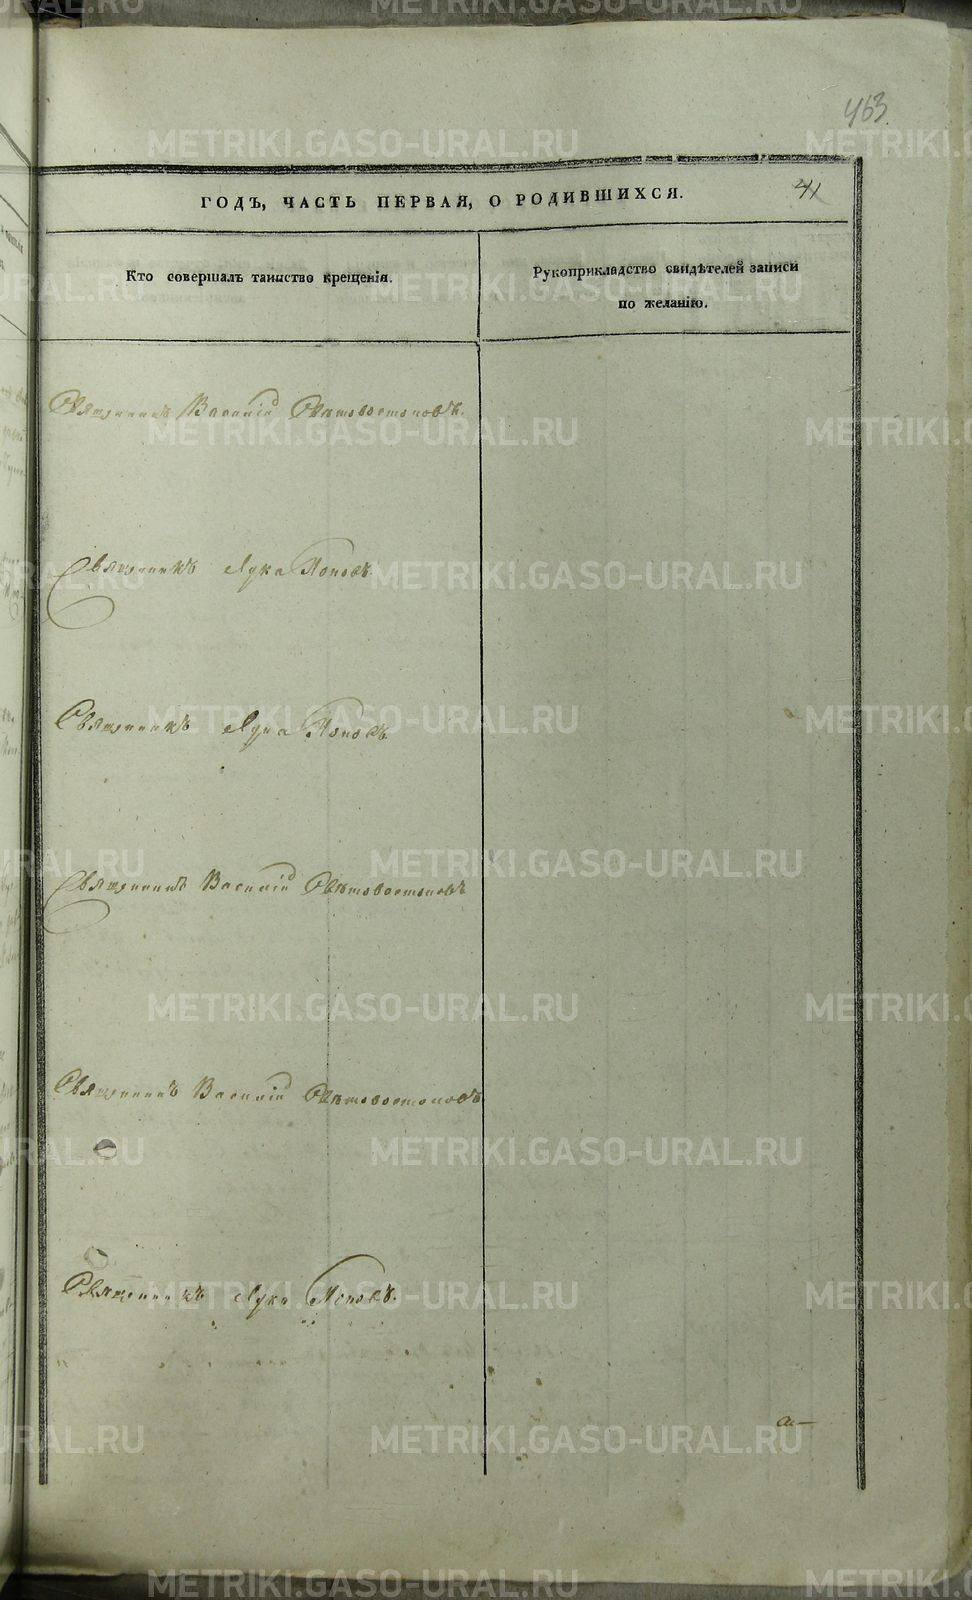 463
41
ГОДЪ, ЧАСТЬ ПЕРВАЯ, О РОДИВШИХСЯ.
Кто совершалъ таинство крещенія.
Рукоприкладство свидѣтелей записи
по желанію.
Священникъ Василій Свѣтовостоковъ.
Священникъ Лука Поповъ.
Священникъ Лука Поповъ
Священникъ Василій Свѣтовостоковъ
Священникъ Василій Свѣтовостоковъ
Священникъ Лука Поповъ.
METRIKI.GASO-URAL.RU